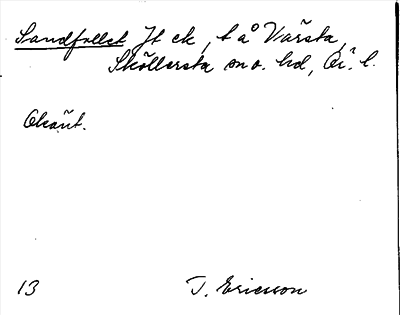 Sandfallet Jt ek, t å Värsta,
Sköllersta sn o. hd, Ör. l.
Okänt.
13 T. Ericsson